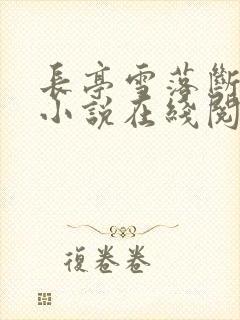 長亭雪落斷
小說在綫閱
復卷卷